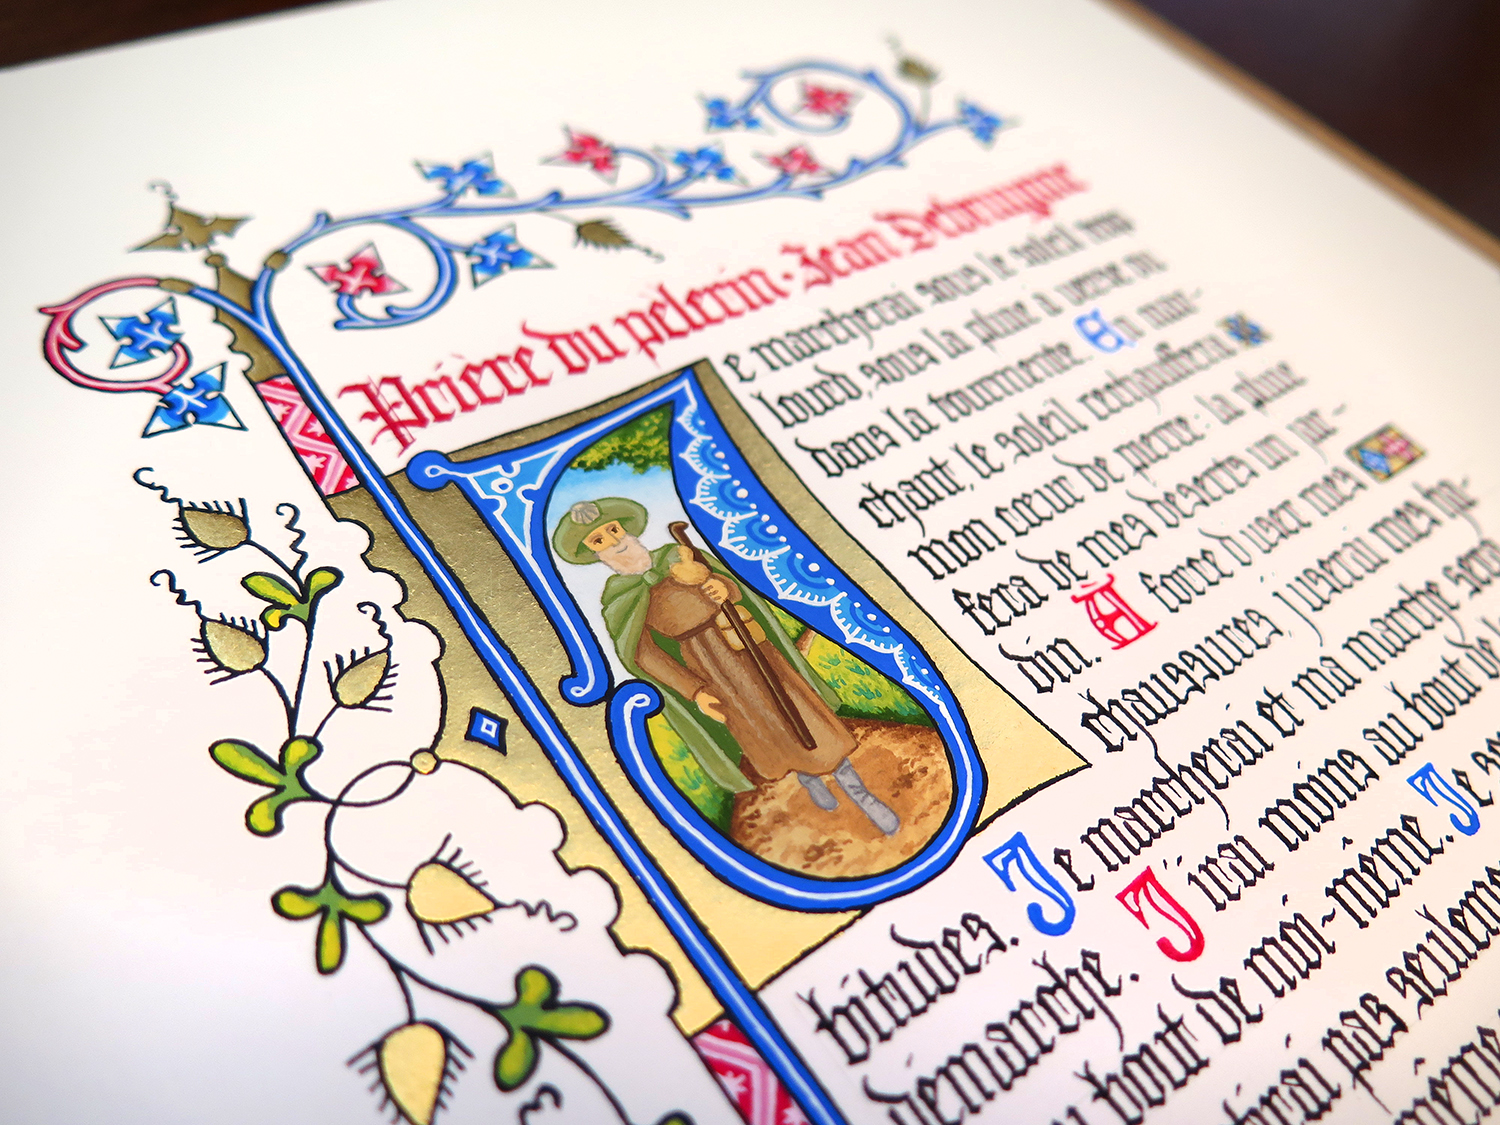 Prière du pèlerin · Jean Debruynne
Je marcherai sous le soleil trop
lourd, sous la pluie à verse ou
dans la tourmente. En mar-
chant, le soleil réchauffera
mon cœur de pierre; la pluie
fera de mes déserts un jar-
din. A force d'user mes
chaussures, j'userai mes ha-
bitudes. Je marcherai et ma marche sera
démarche. J'irai moins au bout de
bout de moi-même. Je
pas seuleme
même